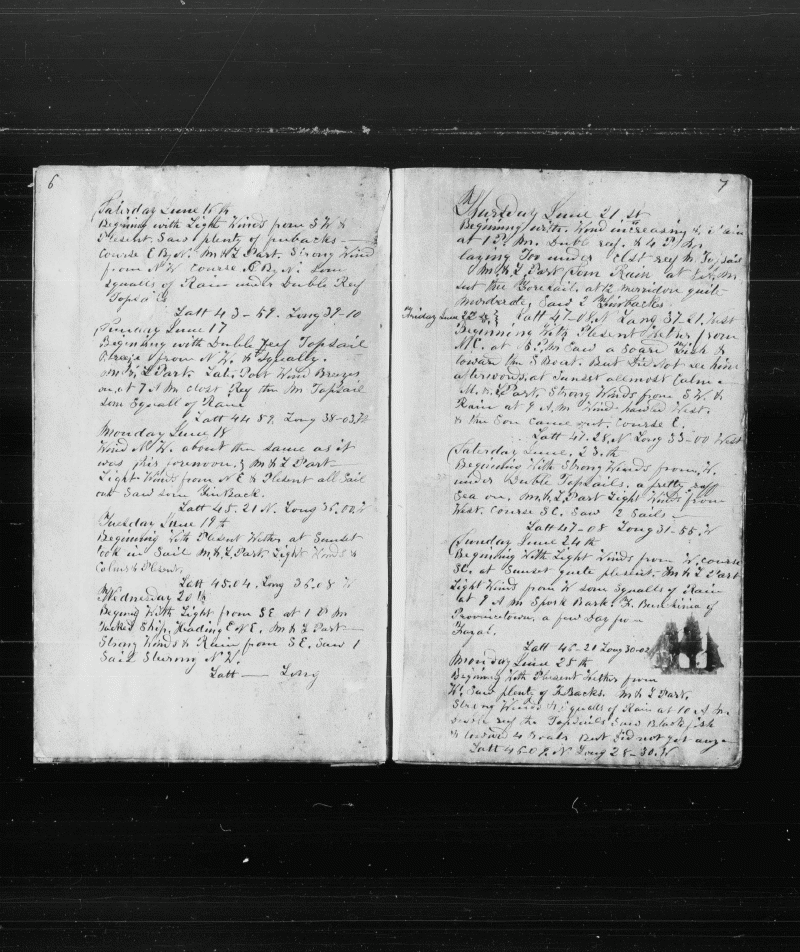 6
Saterday June 16 th
Begining with Light Winds from S W &
Plesent. Saw plenty of finbacks
Course E By N. M & L Part. Strong Wind
from N W Course E By N. Som
Squalls of Rain under Duble Reef
Topsails
Latt 43-59. Long 39-10
Sunday June 17
Beginning with Double Reef Topsail
Breeze from N W. & Squally.
M & L Part. Late Part Wind Brezes
on, at 7 A M Clost Ref the M Topsail
som Squall of Rain
Latt 44 59. Long 38-03 W
Monday June 18
Wind N W. about the same as it
was this forenoon, & M & L Part
Light Winds from N E & Plesent all Sail
out Saw som FinBack.
Latt 45.21 N. Long 36.02
Tuesday June 19 th
Beginning with Plesent Wether at Sunset
took in Sail M & L Part Light Winds &
Calms & Plesent.
Latt 45.04. Long 36.08 W
Wednesday 20 th
Begining With Light from SE at 1 P M
Tacked Ship, Heading E N E. M & L Part
Strong Winds & Rain from S E. Saw 1
Sail Stering N W.
Latt — Long
7
Thursday June 21 st
Beginning with. Wind increasing & Rain
at 1 P. M. Duble ref. & 4 P M
laying Too under Clst reef M Topsail
M & L Part Som Rain at A M
sut the Foresail. at 12 merridon quit
modrade, Saw 2 Finbacks.
Friday June 22 Latt 47-01 N Long 37-21. West
Beginning With Plesent Wether from
NE. at 5 P M Saw a Soard Fish &
lowerd the S Boart. But Did Not see him
afterwords, at Sunset allmost Calm
M. & L Part. Strong Winds from S W. &
Rain at 9 A. M Wind hauled West.
& the Son Came out. Course E.
Latt 47.28. N Long 33-00 West
Saterday June, 23 th
Beginning With Strong Winds from, W.
under Duble Topsails. a pretty ruff
Sea on, M & L Part Light Winds from
West. Course S E. Saw 2 Sails
Latt 47-08 Long 31-55. W
Sunday June 24 th
Beginning With Light Winds from W. Course
SE. at Sunset quite plesent. M & L Part
Light Winds from W som Squalls of Rain
at 9 A M Spork Bark. of
Provincetown, a few Day from
Fayal.
Latt 46-20 Long 30-02
Monday June 25 th
Begining With Plesent Wether from
W. Saw plenty of F. Backs. M & L Part.
Strong Winds & Squalls of Rain at 10 A M
reef the Topsails Saw Black fish
& lowerd 4 Boats But Did not get any
Latt 46 09. N Long 28-30. W